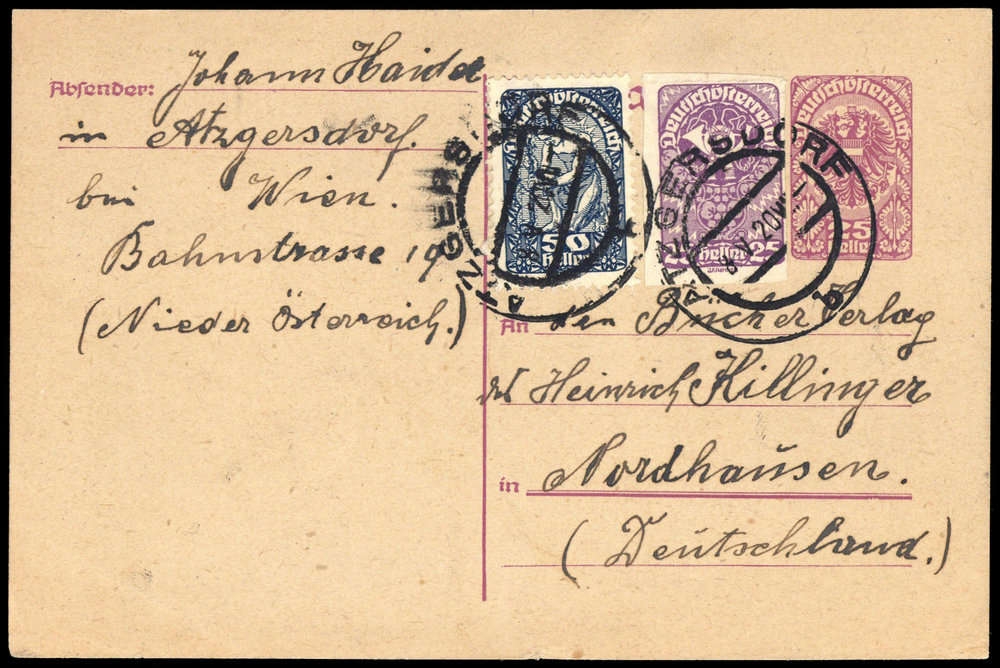 Absender: Johann Haidel
in Atzgersdorf.
bei Wien.
Bahnstrasse 19
(Nieder Österreich.)
Deutschösterreich
50
Heller
Deutschösterreich
25
Heller
Deutschösterreich
25
Heller
ATZGERSDORF
ATZGERSDORF
b
An den Bücher Verlag
des Heinrich Killinger
in Nordhausen.
(Deutschland.)